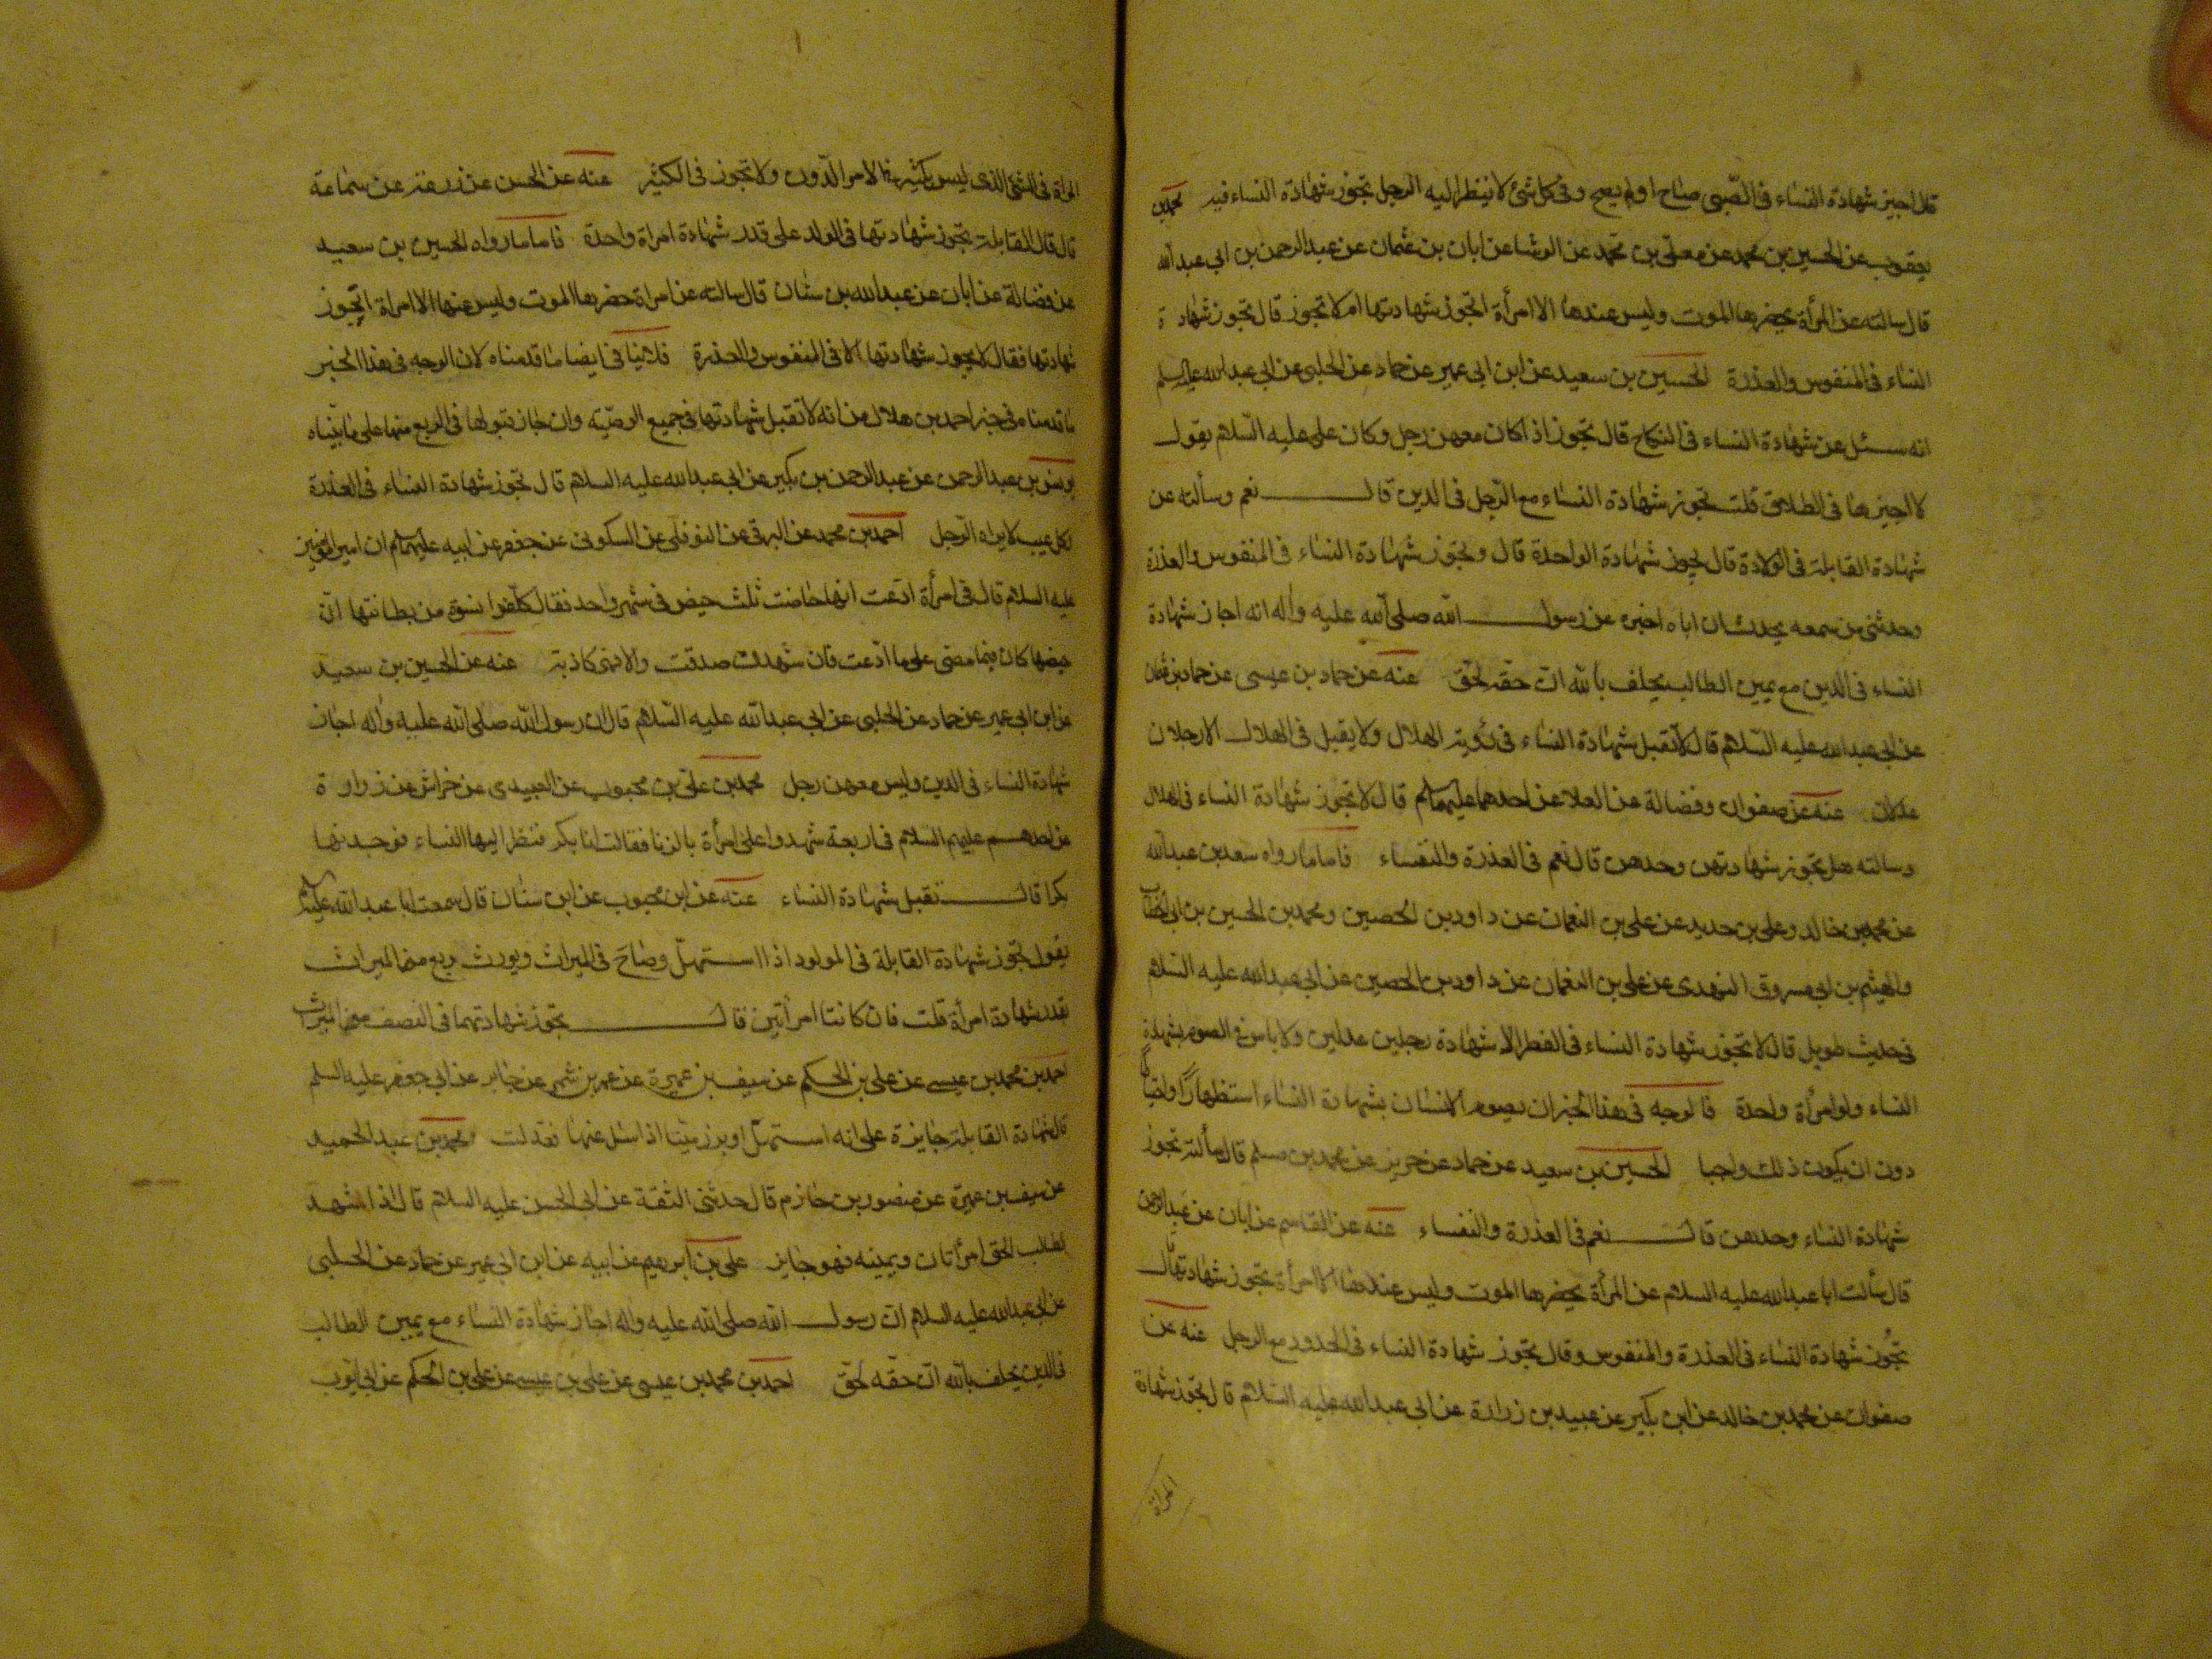 قال اجيز شهادة النساء فى الصّبى صاح او لم يصح و فى كل شئ لا ينظر اليه الرجل تجوز شهادة النساء فيه محمد بن
يعقوب عن الحسين بن محمد عن معلى بن محمد عن الوشا عن ابان بن عثمان عن عبد الرحمن بن ابى عبد الله
قال سالته عن المرأة يحضرها الموت وليس عندها الا امرأة اتجوز شهادتها ام لا تجوز قال تجوز شهادة
النساء فى المنفوس والعذرة الحسين بن سعيد عن ابن ابى عمير عن حماد عن الحلبى عن ابى عبد الله عليه السلم
انه سئل عن شهادة النساء فى النكاح قال تجوز اذا كان معهن رجل وكان على عليه السّلام يقول
لا اجيزها فى الطلاق قلت تجوز شهادة النساء مع الرّجل فى الدين قال نعم وسألته عن
شهادة القابلة فى الولادة قال يجوز شهادة الواحدة قال وتجوز شهادة النساء فى المنفوس والعذرة
وحدثنى من سمعه يحدث ان اباه اخبره عن رسول الله صلى الله عليه واله انه اجاز شهادة
النساء فى الدين مع يمين الطالب يحلف بالله انّ حقّه لحق عنه عن حماد بن عيسى عن حماد بن عثمان
عن ابى عبد الله عليه السّلام قال لا تقبل شهادة النساء فى رؤية الهلال ولا يقبل فى الهلال الا رجلان
عدلان عنه عن صفوان وفضالة عن العلا عن احدهما عليهما السلم قال لا تجوز شهادة النساء فى الهلال
وسالته هل تجوز شهادتهن وحدهن قال نعم فى العذرة والنفساء فاما ما رواه سعد بن عبد الله
عن محمد بن خالد وعلى بن حديد عن على بن النعمان عن داود بن الحصين ومحمد بن الحسين بن ابى الخطاب
والهيثم بن ابى مسروق النهدى عن على بن النعمان عن داود بن الحصين عن ابى عبد الله عليه السّلام
فى حديث طويل قال لا تجوز شهادة النساء فى الفطر الا شهادة رجلين عدلين ولا باس فى الصوم بشهادة
النساء ولو امرأة واحدة فالوجه فى هذا الخبر ان يصوم الانسان بشهادة النساء استظهارًا واحتياطًا
دون ان يكون ذلك واجبا الحسين بن سعيد عن حماد عن حريز عن محمد بن مسلم قال سألته تجوز
شهادة النساء وحدهن قال نعم فى العذرة والنفساء عنه عن القاسم عن ابان عن عبد الرحمن
قال سألت ابا عبد الله عليه السلام عن المرأة يحضرها الموت وليس عندها الا امرأة تجوز شهادتها قال
تجُوز شهادة النساء فى العذرة والمنفوس وقال تجوز شهادة النساء فى الحدود مع الرجل عنه عن
صفوان عن محمد بن خالد عن ابن بكير عن عبيد بن زرارة عن ابى عبد الله عليه السّلام قال تجوز شهادة
المرأة
المرأة فى الشئ الذى ليس بكثير فى الامر الدّون ولا تجوز فى الكثير عنه عن الحسن عن زرعة عن سماعة
قال قال القابلة تجوز شهادتها فى الولد على قدر شهادة امراة واحدة فاما ما رواه الحسين بن سعيد
عن فضالة عن ابان عن عبد الله بن سنان قال سالته عن امراة حضرها الموت وليس عندها الا امراة اتجوز
شهادتها فقال لا يجوز شهادتها الا فى المنفوس والعذرة فلا ينافى ايضا ما قدمناه لان الوجه فى هذا الخبر
ما قدمنا فى خبر احمد بن هلال من انه لا تقبل شهادتها فى جميع الوصيّة وان جاز قبولها فى الربع منها على ما بيّناه
يونس بن عبد الرحمن عن عبد الرحمن بن بكير عن ابى عبد الله عليه السلام قال تجوز شهادة النساء فى العذرة
وكل عيب لا يراه الرّجل احمد بن محمد عن البرقى عن النوفلى عن السكونى عن جعفر عن ابيه عليهما السلم ان امير المؤمنين
عليه السلام قال فى امرأة ادّعت انها حاضت ثلث حيض فى شهر واحد فقال كلّفوا نسوة من بطانتها انّ
حيضها كان فيما مضى على ما ادّعت فان شهدت صدقت والا فهى كاذبة عنه عن الحسين بن سعيد
عن ابن ابى عمير عن حماد عن الحلبى عن ابى عبد الله عليه السّلام قال ان رسول الله صلى الله عليه واله اجاز
شهادة النساء فى الدين وليس معهن رجل محمد بن على بن محبوب عن العبيدى عن خراش عن زرارة
عن احدهم عليهم السلام فى اربعة شهدوا على امرأة بالزنا فقالت انا بكر فنظر اليها النساء فوجدنها
بكرا قال تقبل شهادة النساء عنه عن ابن محبوب عن ابن سنان قال سمعت ابا عبد الله عليه السلم
يقول تجوز شهادة القابلة فى المولود اذا استهلّ وصاح فى الميراث ويورث ربع من الميراث
بقدر شهادة امرأة قلت فان كانتا امرأتين قال تجوز شهادتهما فى النصف من الميراث
احمد بن محمد بن عيسى عن على بن الحكم عن سيف بن عميرة عن عمر بن شمر عن جابر عن ابى جعفر عليه السلم
قال شهادة القابلة جايزة على انه استهلّ او برز ميّتا اذا سئل عنها فعدلت محمد بن عبد الحميد
عن سيف بن عميرة عن منصور بن حازم قال حدثنى الثقة عن ابى الحسن عليه السلام قال اذا شهد
لطالب الحق امرأتان ويمينه فهو جايز على بن ابرهيم عن ابيه عن ابن ابى عمير عن حماد عن الحلبى
عن ابى عبد الله عليه السلام انّ رسول الله صلى الله عليه واله اجاز شهادة النساء مع يمين الطالب
فى الدين يحلف بالله انّ حقّه لحقّ احمد بن محمد بن عيسى عن على بن عيسى عن على بن الحكم عن ابى ايّوب